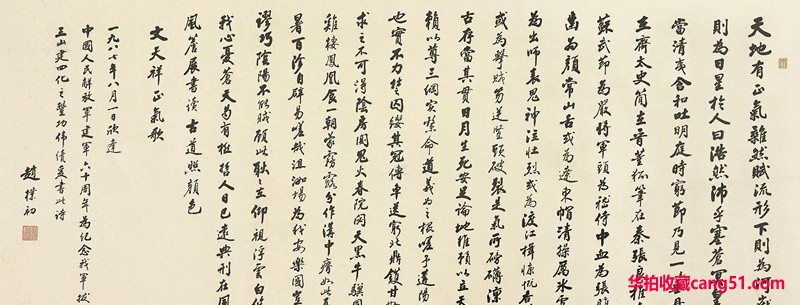 天地有正氣雜然賦流形下則為河
則為日星於人曰浩然沛乎塞蒼冥
當清夷含和吐明庭時窮節乃見一
在齊太史簡在晉董狐筆在秦張良椎
蘇武節為嚴將軍頭為嵇侍中血為張
齒為顏常山舌或為遼東帽清操厲冰雪
為出師表鬼神泣壯烈或為渡江楫慷慨吞
或為擊賊笏逆豎頭破裂是氣所磅礴凜
古存當其貫日月生死安足論地維賴以立天
賴以尊三綱實繫命道義為之根嗟予遘陽
也實不力楚囚纓其冠傳車送窮北鼎鑊甘
求之不可得陰房闃鬼火春院閟天黑牛驥同
雞棲鳳凰食一朝蒙霧露分作溝中瘠如此
暑百沴自辟易嗟哉沮洳場為我安樂國
謬巧陰陽不能賊顧此耿耿在仰視浮雲白
我心憂蒼天曷有極哲人日已遠典刑在夙
風簷展書讀古道照顏色
文天祥正氣歌
一九八七年八月一日欣逢
中國人民解放軍建軍六十周年為紀念我軍
三山建四化之豐功偉績爰書此詩
趙樸初
华拍收藏cang51.com